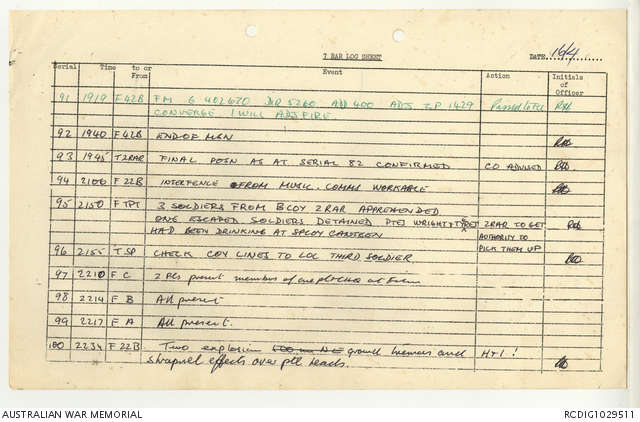 7 RAR LOG SHEET
DATE 16/4
Serial Time to or From Event Action Initials of Officer
91 1919 F42B FM G 402670 DIR 5260 ADD 400 ADJ 2P 1429 Passed to
CONVERGE. I WILL ADJ FIRE
92 1940 F42B END OF MSN
93 1945 T2RAR FINAL POSN AS AT SERIAL 82 CONFIRMED CO ADVISED
94 2100 F22B INTERFENCE FROM MUSIC. COMMS WORKABLE
95 2150 F TPT 3 SOLDIERS FROM BCOY 2RAR APPREHENDED
ONE ESCAPED SOLDIERS DETAINED PTES WRIGHT + 2RAR TO GET
HAD BEEN DRINKING AT SPCOY CANTEEN AUTHORITY TO
PICK THEM UP
96 2155 T SP CHECK COY LINES TO LOC THIRD SOLDIER
97 2210 F C 2 Pls present members of one at
98 2214 F B All present
99 2217 F A All present.
100 2234 F 22B Two explosion ground tremors and HTI!
shrapnel effects over pll heads.
AUSTRALIAN WAR MEMORIAL
RCDIG1029511